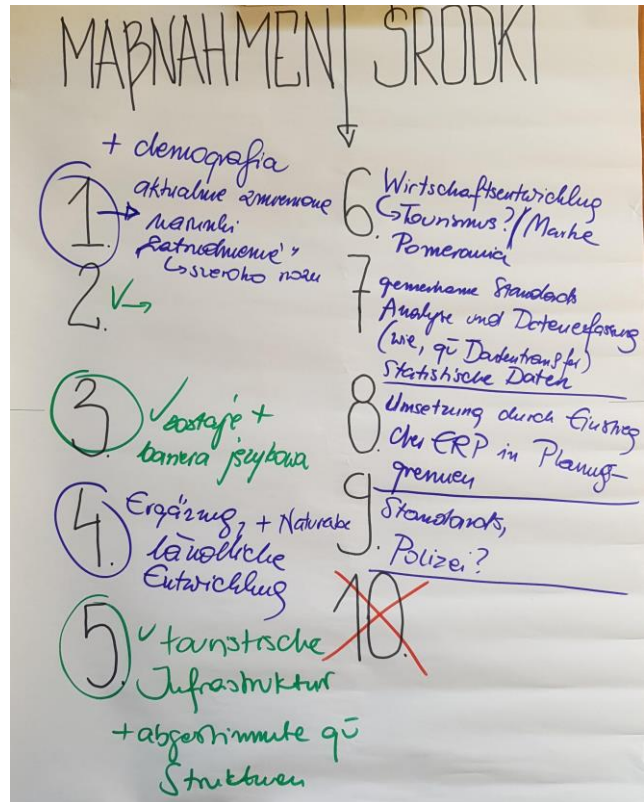 MAßNAHMEN ŚRODKI
+ demografia
1. → aktualnie zmienione
warunki
zatrudnienie"
↳ szeroko rozu
2. ✓→
3. ✓ zostaje +
bariera językowa
4. Ergänzung, + Naturabe
ländliche
Entwicklung
5. ✓ touristische
Infrastruktur
+ abgestimmte gü
Strukturen
6. Wirtschaftsentwicklung
↳ Tourismus? / Marke
Pomerania
7 gemeinsame Standards
Analyse und Datenerfassung
(wie, gü Datentransfer)
Statistische Daten
8. Umsetzung durch Einstieg
der ERP in Planungs-
grenzen
9. Standards,
Polizei?
10.